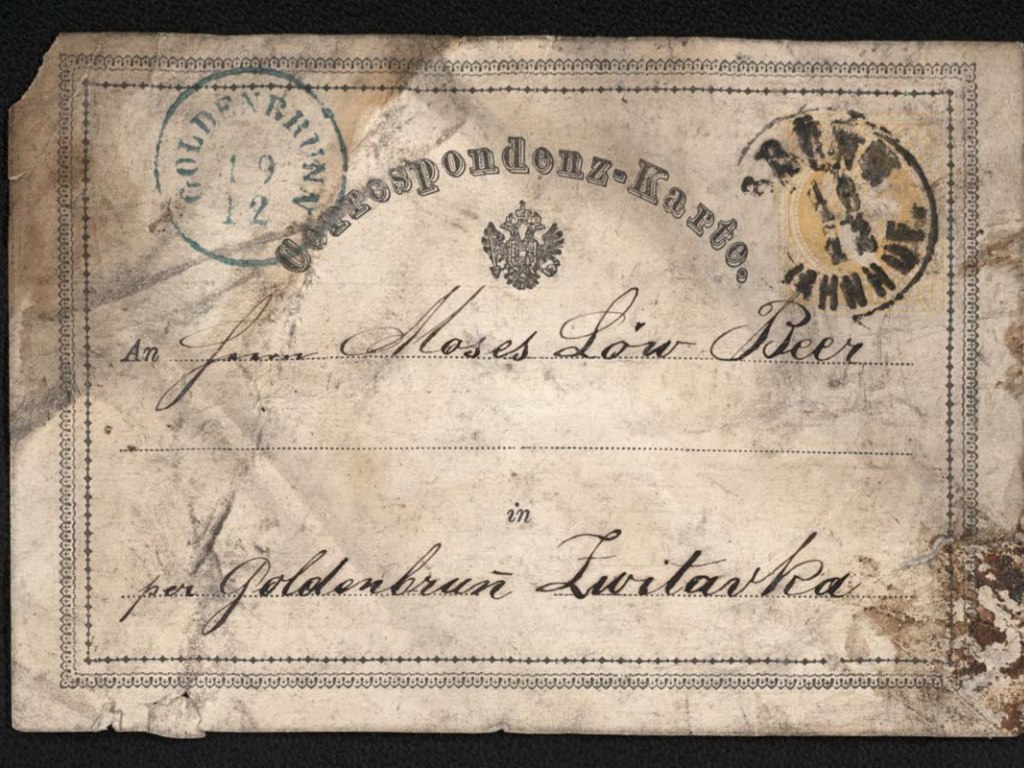 GOLDENBRUNN
19
12
Correspondenz-Karte.
BRÜNN
BAHNHOF
An Herrn Moses Löw Beer
in
per Goldenbrun̄ Zwitavka